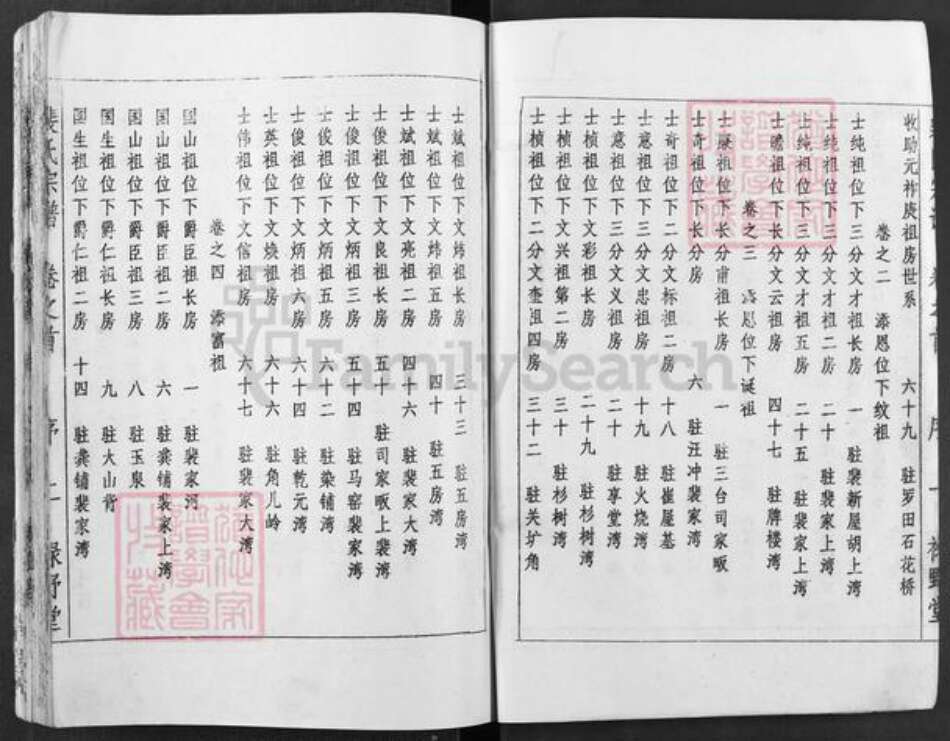 收助元祚庚祖房世系 六十九 驻罗田石花桥
卷之二 添恩位下纹祖
士纯祖位下三分文才祖长房 一 驻裴新屋胡上湾
士纯祖位下三分文才祖二房 二十 驻裴家上湾
士纯祖位下三分文才祖五房 二十五 驻裴家上湾
士瞻祖位下长分文云祖房 四十七 驻牌楼湾
卷之三 恩位下诞祖
士 祖位下二分甫祖长房 一 驻三台司家畈
士奇祖位下长分房 六 驻汪冲裴家湾
士奇祖位下二分文标祖二房 十八 驻崔屋基
士意祖位下三分文忠祖房 十九 驻火烧湾
士意祖位下三分文义祖房 二十 驻享堂湾
士桢祖位下文彩祖长房 二十九 驻杉树湾
士桢祖位下文兴祖第二房 三十 驻杉树湾
士桢祖位下二分文奎祖四房 三十二 驻关圹角
士斌祖位下文炜祖长房 三十三 驻五房湾
士斌祖位下文炜祖五房 四十 驻五房湾
士斌祖位下文亮祖二房 四十六 驻裴家大湾
士俊祖位下文良祖长房 五十 驻司家畈上裴湾
士俊祖位下文炳祖三房 五十四 驻马窑裴家湾
士俊祖位下文炳祖五房 六十二 驻染铺湾
士俊祖位下文炳祖六房 六十四 驻乾元湾
士英祖位下文焕祖房 六十六 驻角儿岭
士伟祖位下文信祖房 六十七 驻裴家大湾
卷之四 添富祖
国山祖位下爵臣祖长房 一 驻裴家河
国山祖位下爵臣祖二房 六 驻龚铺裴家上湾
国山祖位下爵臣祖三房 八 驻玉泉
国生祖位下爵仁祖长房 九 驻大山背
国生祖位下爵仁祖二房 十四 驻龚铺裴家湾
裴氏宗谱 卷之首 序 二 绿野堂
FamilySearch